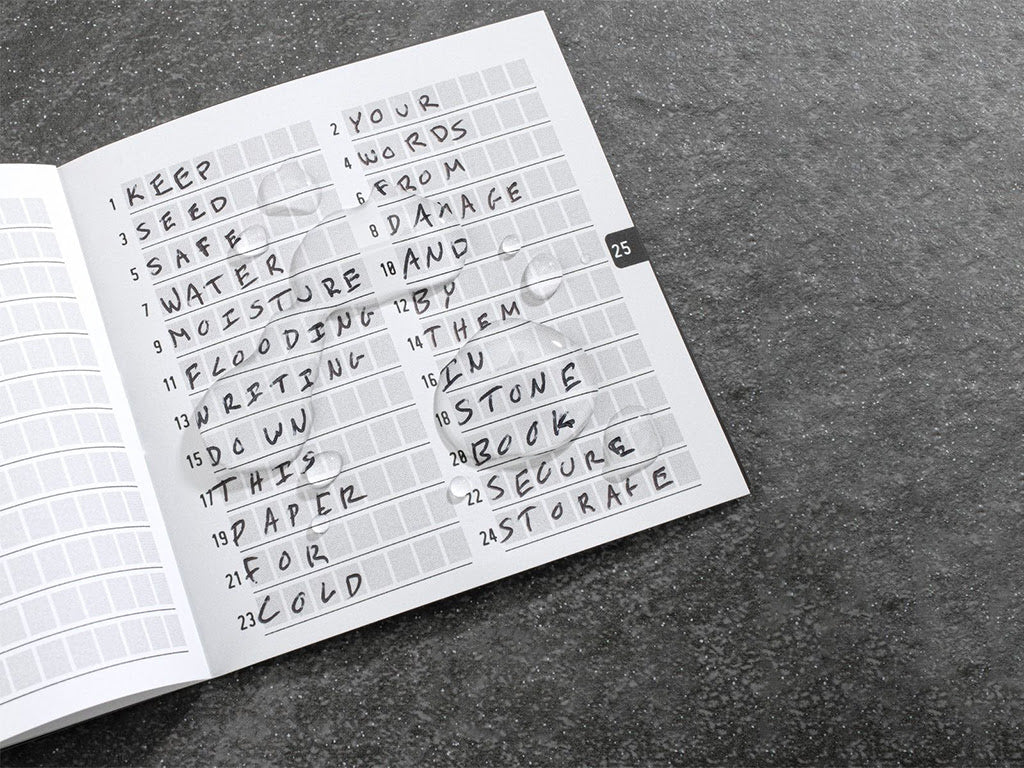 1 KEEP
2 YOUR
3 SEED
4 WORDS
5 SAFE
6 FROM
7 WATER
8 DAMAGE
9 MOISTURE
10 AND
11 FLOODING
12 BY
13 WRITING
14 THEM
15 DOWN
16 IN
17 THIS
18 STONE
19 PAPER
20 BOOK
21 FOR
22 SECURE
23 COLD
24 STORAGE
25